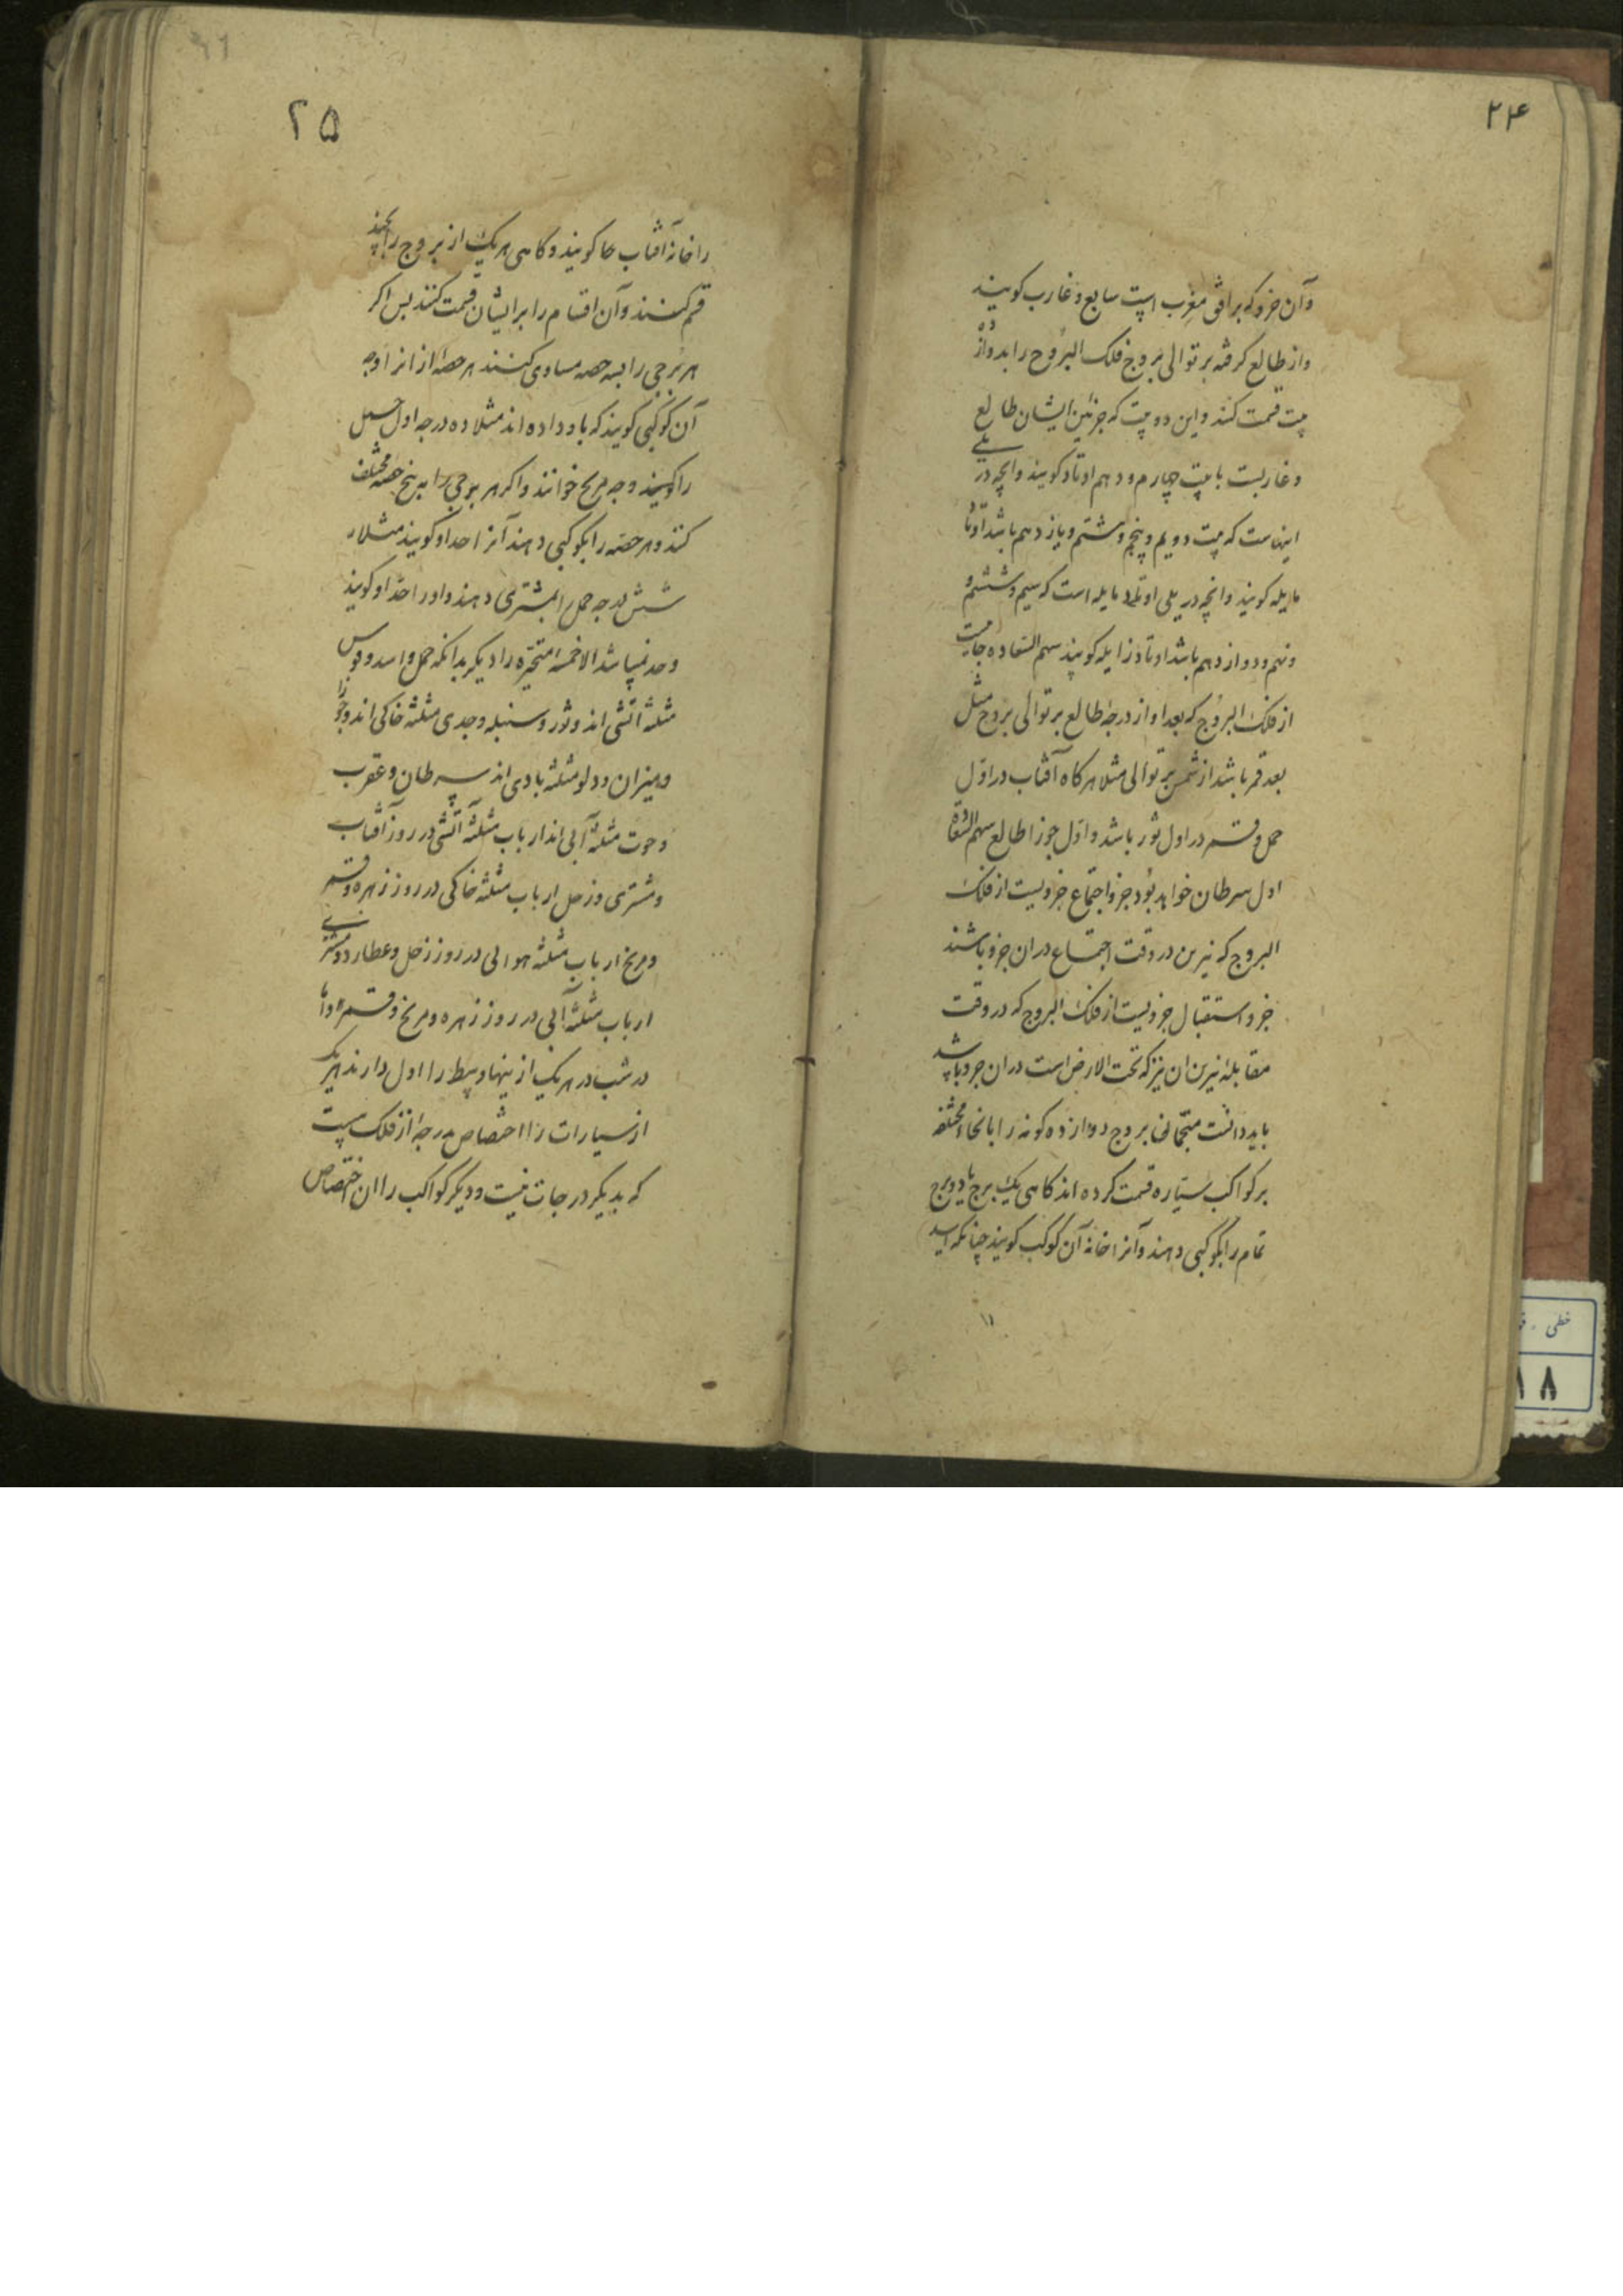 ۲۴
وآن جزو که بر افق مغرب است سابع و غارب کویند
واز طالع کرفته بر توالی بروج فلک البروج را بدوازده
بیت قسمت کنند واین دو بیت که جزئین ایشان طالع
وغاربست با بیت چهارم ودهم اوتاد کویند وانچه در یلی
اینهاست که بیت دویم وپنجم وهشتم ویازدهم باشد اوتاد
مایله کویند وانچه در یلی اوتاد مایله است که سیم وششم و
ونهم ودوازدهم باشد اوتاد زایله کویند سهم السعاده جائیست
از فلک البروج که بعد او از درجهٔ طالع بر توالی بروج مثل
بعد قمر باشد از شمس بر توالی مثلا هرکاه آفتاب در اول
حمل وقمر در اول ثور باشد واول جوزا طالع سهم السعاده
اول سرطان خواهد بود جزو اجتماع جزویست از فلک
البروج که نیرین در وقت اجتماع دران جزو باشند
جزو استقبال جزویست از فلک البروج که در وقت
مقابلهٔ نیرین ان نیز که تحت الارض است دران جزو باشد
باید دانست منجمان بروج دوازده کونه را بانحاء مختلفه
بر کواکب سیّاره قسمت کرده اند کاهی یک برج یا دو برج
تمام را بکوکبی دهند وآنرا خانهٔ آن کوکب کویند چنانکه اسد
۲۵
را خانهٔ آفتاب ها کویند وکاهی هر یک از بروج را بچند
قسم کنند وآن اقسام را بر ایشان قسمت کنند پس اکر
هر برجی را بسه حصه مساوی کنند هر حصهٔ از انرا وجه
آن کوکبی کویند که باو داده اند مثلا ده درجه اول حمل
را کویند وجه مریخ خوانند واکر هر برجی را به پنج حصه مختلف
کنند وهر حصه را بکوکبی دهند آنرا حد او کویند مثلا
شش درجه حمل را بمشتری دهند واورا حد او کویند
وحد نمیباشد الا خمسهٔ متحیّره را دیکر بدانکه حمل واسد وقوس
مثلثهٔ آتشی اند وثور وسنبله وجدی مثلثهٔ خاکی اند وجوزا
ومیزان ودلو مثلثهٔ بادی اند سرطان وعقرب
وحوت مثلثهٔ آبی اند ارباب مثلثهٔ آتشی در روز آفتاب
ومشتری وزحل ارباب مثلثهٔ خاکی در روز زهره وقمر
ومریخ ارباب مثلثهٔ هوائی در روز زحل وعطارد ومشتری
ارباب مثلثهٔ آبی در روز زهره ومریخ وقمر واما
در شب در هر یک از ینها وسط را اول دارند هر یک
از سیارات را اختصاص بدرجهٔ از فلک هست
که بدیکر درجات نیست ودیکر کواکب را ان اختصاص
خطی
۱۸